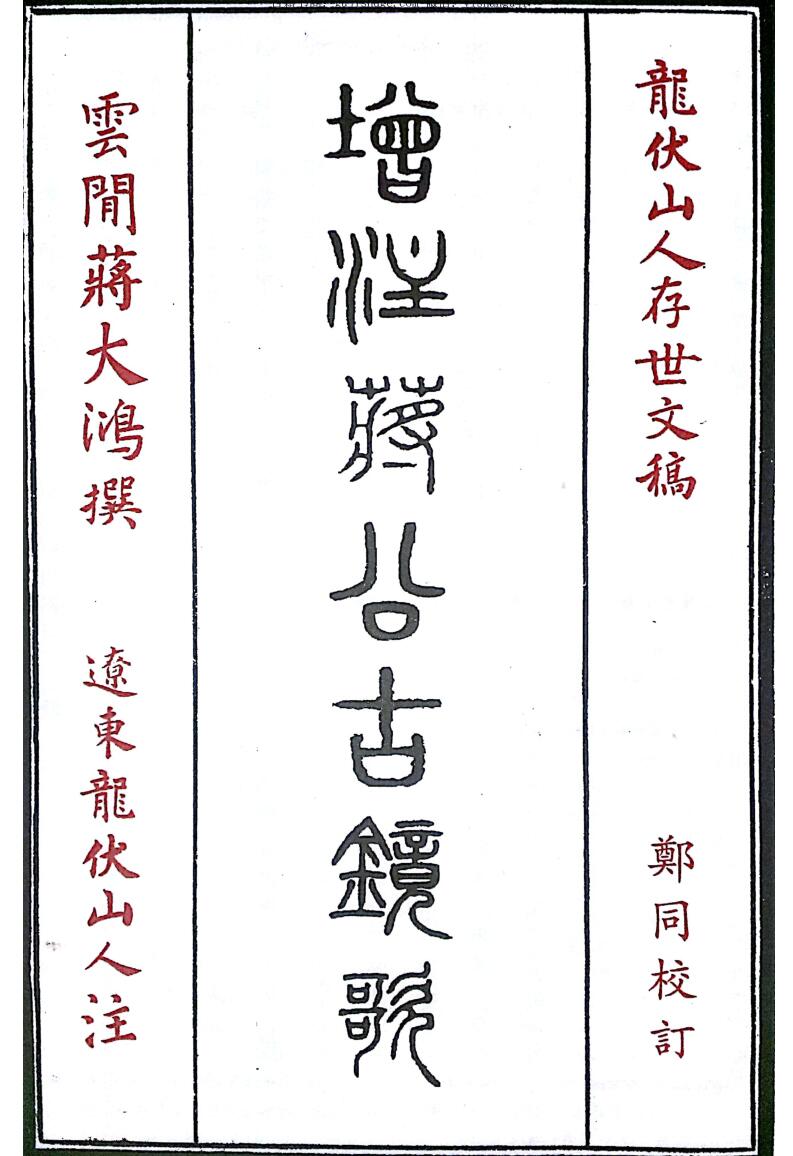 龍伏山人存世文稿
鄭同校訂
增注蔣公古鏡歌
雲間蔣大鴻撰
遼東龍伏山人注